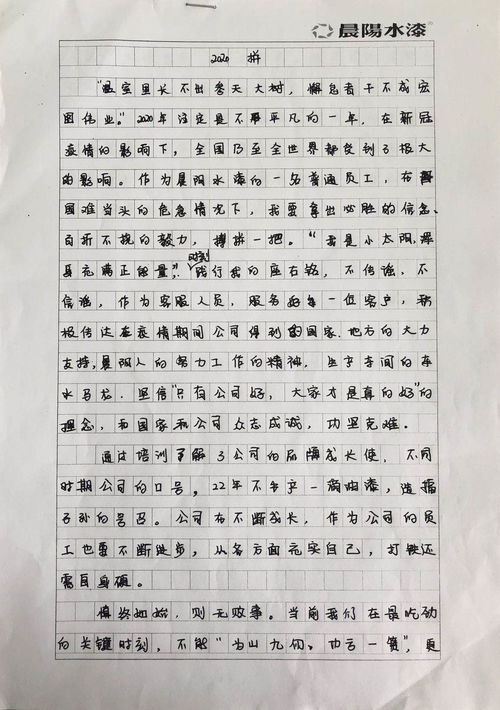 晨陽水漆
2020 拼
"温室里长不出参天大树，懈怠者干不成宏
图伟业。"2020年注定是不平凡的一年，在新冠
疫情的影响下，全国乃至全世界都受到了极大
的影响。作为晨阳水漆的一名普通员工，在
国难当头的危急情况下，我要拿出必胜的信念、
百折不挠的毅力，搏拼一把。"我是小太阳，浑
身充满正能量"，时刻践行我的座右铭，不传谣，不
信谣，作为客服人员，服务好每一位客户，积
极传达在疫情期间公司得到的国家、地方的大力
支持，晨阳人的努力工作的精神，生产车间的车
水马龙。坚信"只有公司好，大家才是真的好"的
理念，和国家和公司众志成诚，功坚克难。
通过培训了解了公司的品牌成长史，不同
时期公司的口号。22年不生产一滴油漆，造福
子孙的号召。公司在不断成长，作为公司的员
工也要不断进步，从各方面充实自己，打铁还
需自身硬。
慎终如始，则无败事。当前我们在最吃劲
的关键时刻，不能"为山九仞，功亏一篑"，更